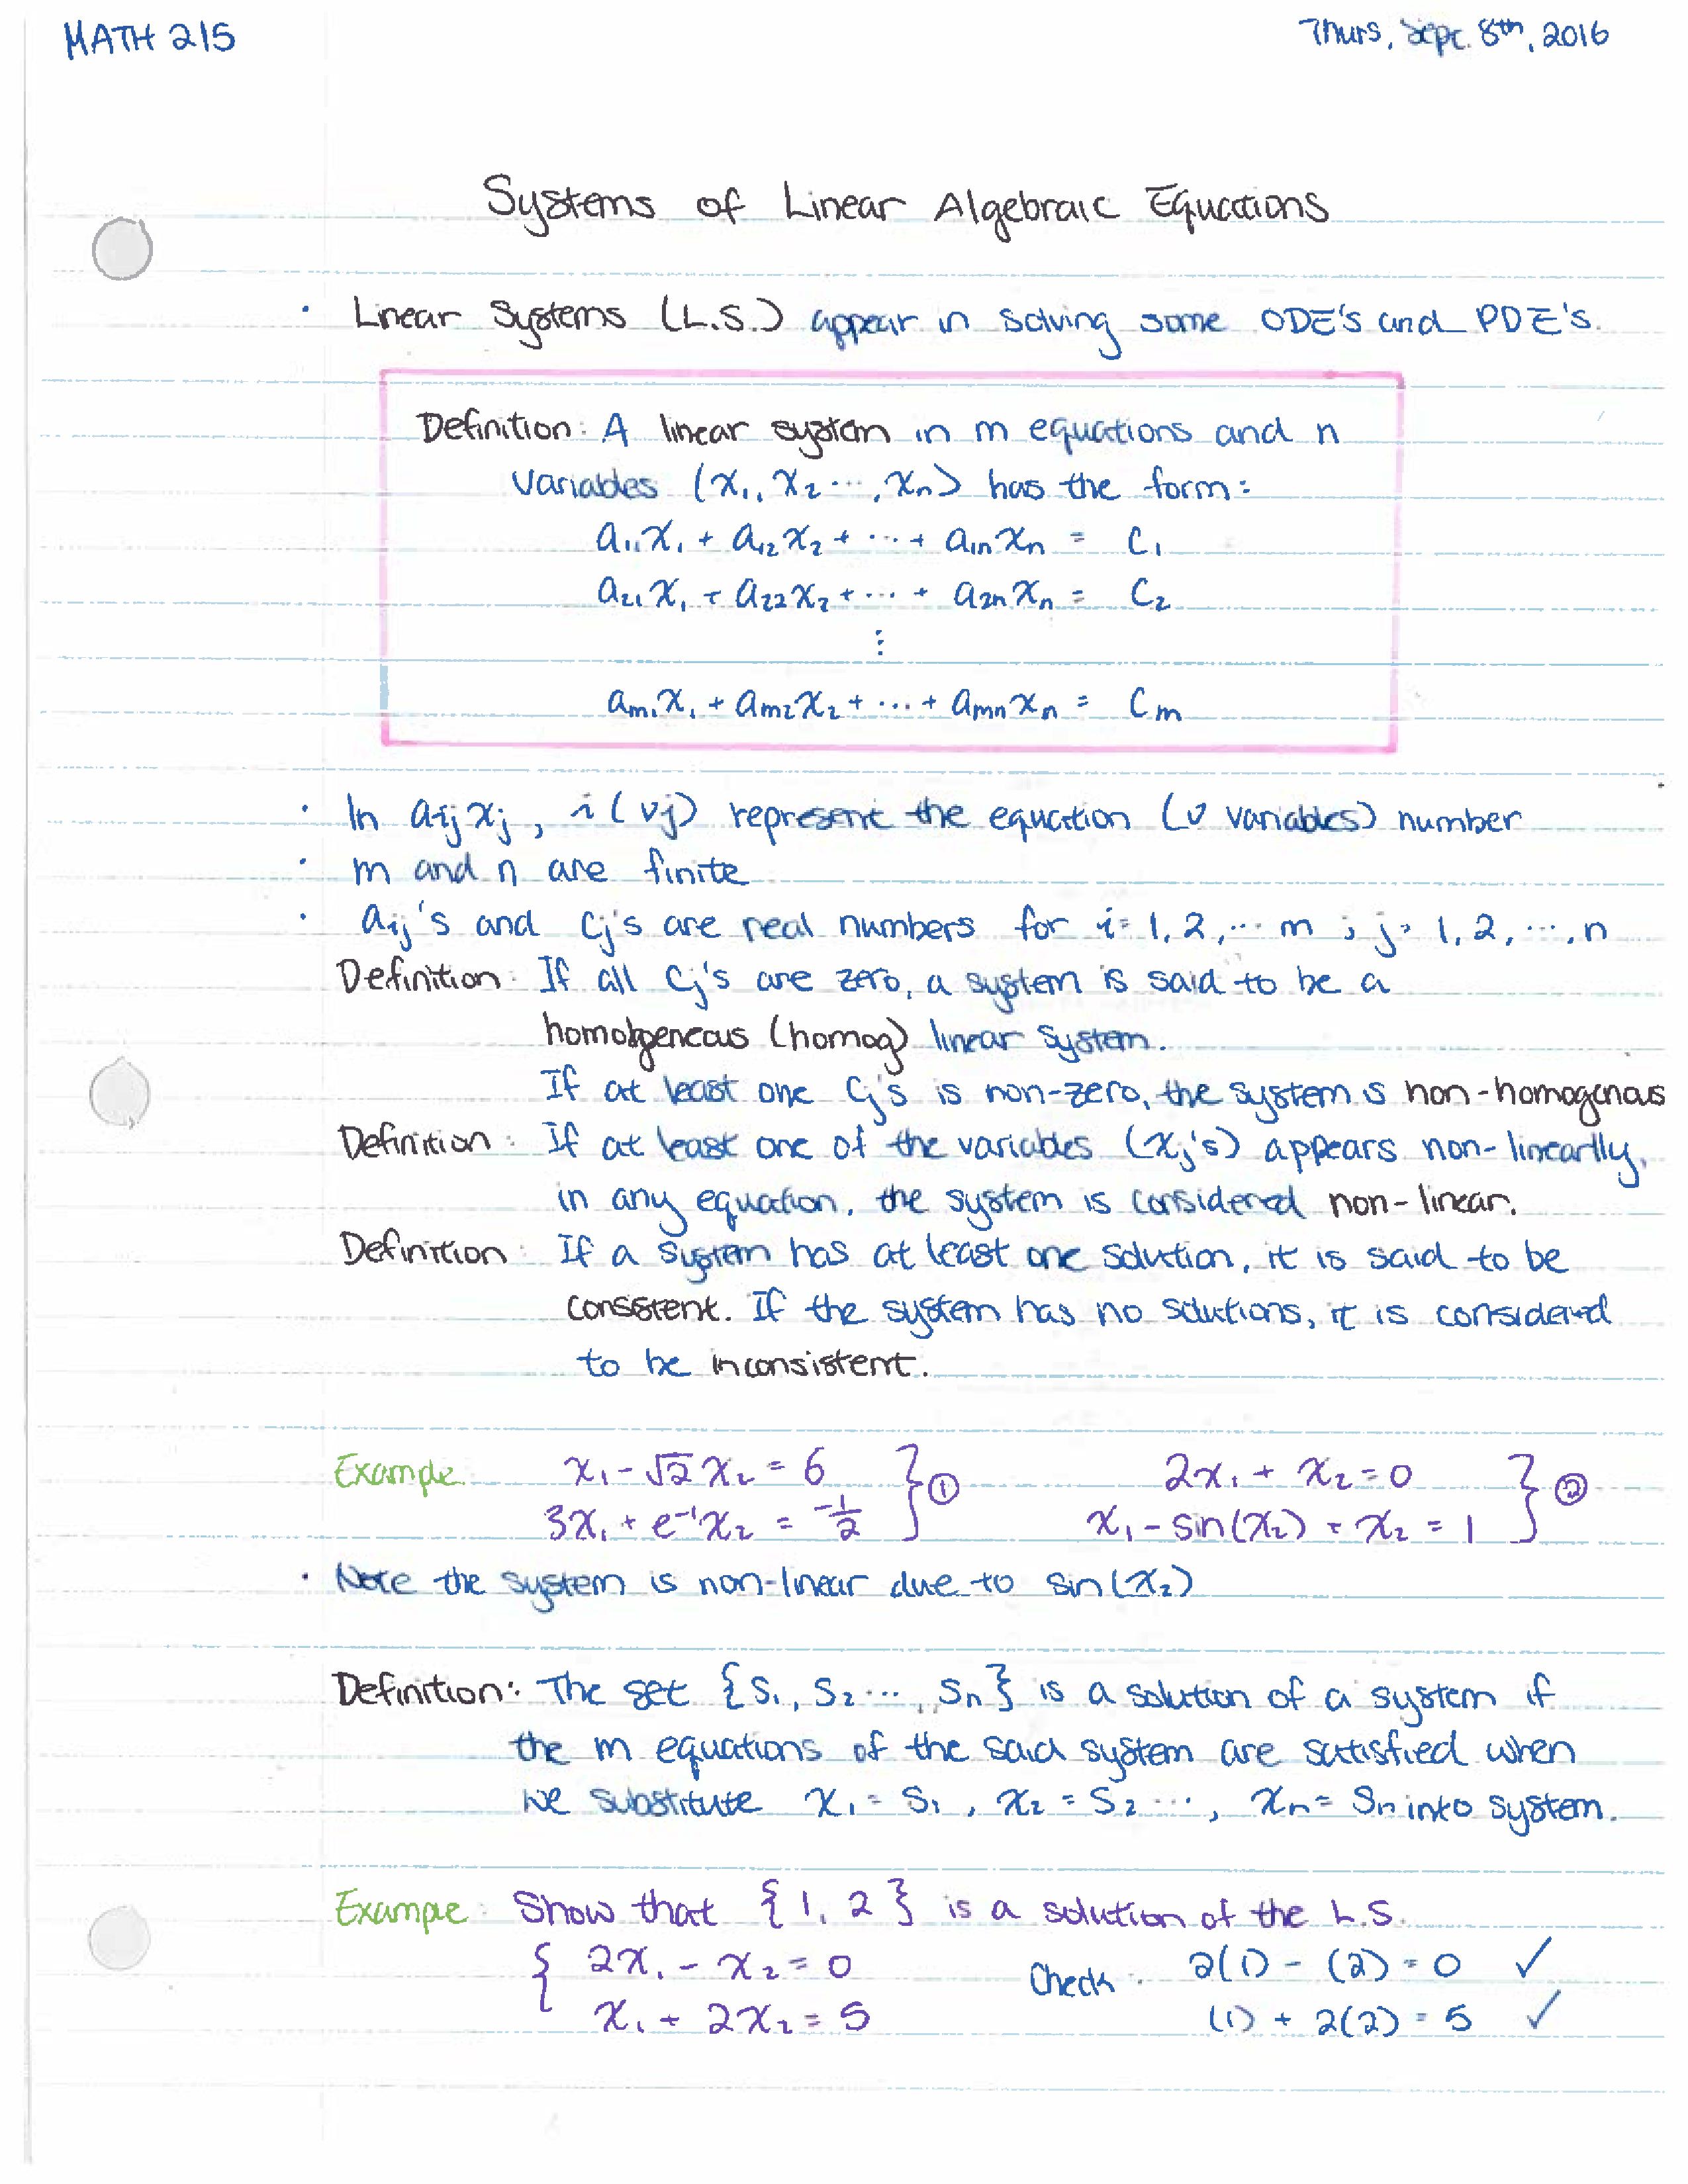 MATH 215
Thurs, Sept. 8th, 2016
Systems of Linear Algebraic Equations
· Linear Systems (L.S.) appear in solving some ODE's and PDE's.
Definition: A linear system in m equations and n
variables (x₁, x₂ ..., xₙ) has the form:
a₁₁x₁ + a₁₂x₂ + ... + a₁ₙxₙ = c₁
a₂₁x₁ + a₂₂x₂ + ... + a₂ₙxₙ = c₂
⋮
aₘ₁x₁ + aₘ₂x₂ + ... + aₘₙxₙ = cₘ
· In aᵢⱼxⱼ, i (vj) represent the equation (v variables) number
· m and n are finite
· aᵢⱼ's and cⱼ's are real numbers for i = 1, 2, ... m ; j = 1, 2, ..., n
Definition: If all cⱼ's are zero, a system is said to be a
homolgeneous (homog) linear system.
If at least one cⱼ's is non-zero, the system is non-homogenous
Definition: If at least one of the variables (xⱼ's) appears non-lineartly,
in any equation, the system is considered non-linear.
Definition: If a system has at least one solution, it is said to be
consistent. If the system has no solutions, it is considered
to be inconsistent.
Example x₁ - √2 x₂ = 6 } ① 2x₁ + x₂ = 0 } ②
3x₁ + e⁻¹x₂ = -1/2 x₁ - sin(x₂) + x₂ = 1
· Note the system is non-linear due to sin(x₂)
Definition: The set {s₁, s₂ ..., sₙ} is a solution of a system if
the m equations of the said system are satisfied when
we substitute x₁ = s₁, x₂ = s₂ ..., xₙ = sₙ into system.
Example: Show that {1, 2} is a solution of the L.S.
{ 2x₁ - x₂ = 0 Check: 2(1) - (2) = 0 ✓
x₁ + 2x₂ = 5 (1) + 2(2) = 5 ✓